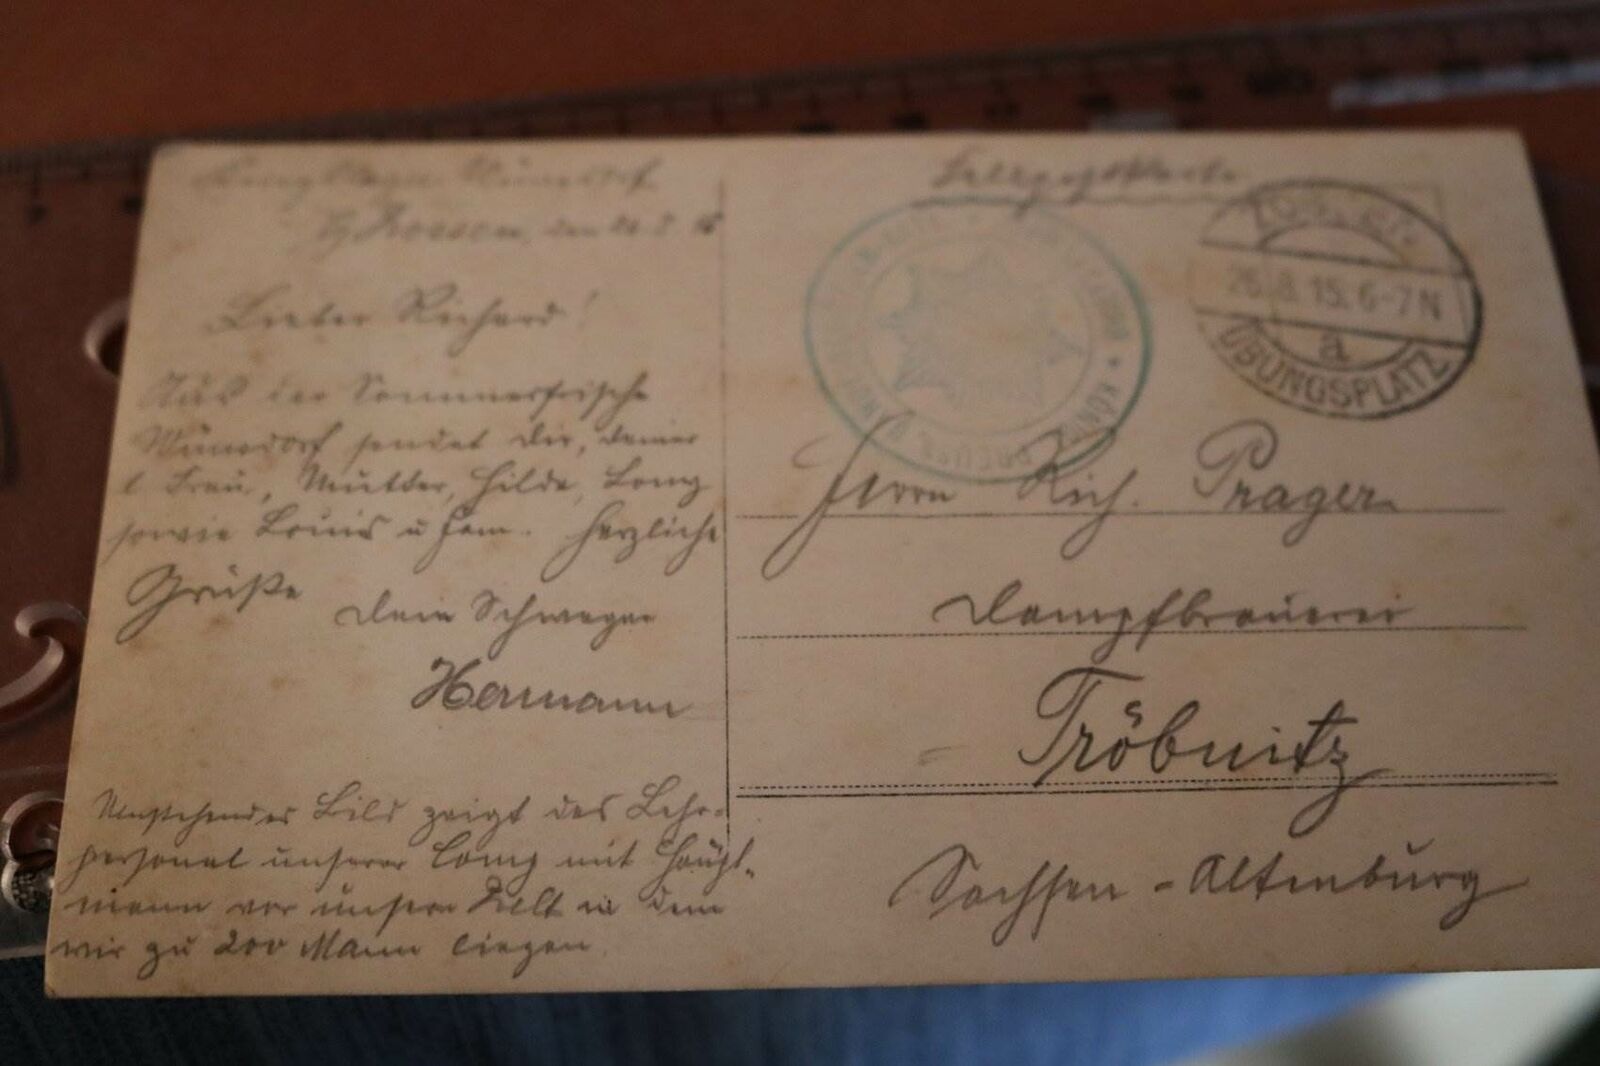 Wünsdorf
b/ Zossen, den
Lieber Richard!
Aus der Sommerfrische
Wünsdorf sendet Dir, deiner
l. Frau, Mutter, Hilde,
sowie Louis u Fam. herzliche
Grüße
Dein Schwager
Hermann
Umstehendes Bild zeigt das Lehr-
personal unserer Comp mit Haupt-
mann vor unserm Zelt in dem
wir zu 200 Mann liegen.
Feldpostkarte
KÖNIGL. PREUSS.
ZOSSEN
26.8.15. 6-7N
a
ÜBUNGSPLATZ
Herrn Rich. Prager
Dampfbrauerei
Tröbnitz
Sachsen-Altenburg